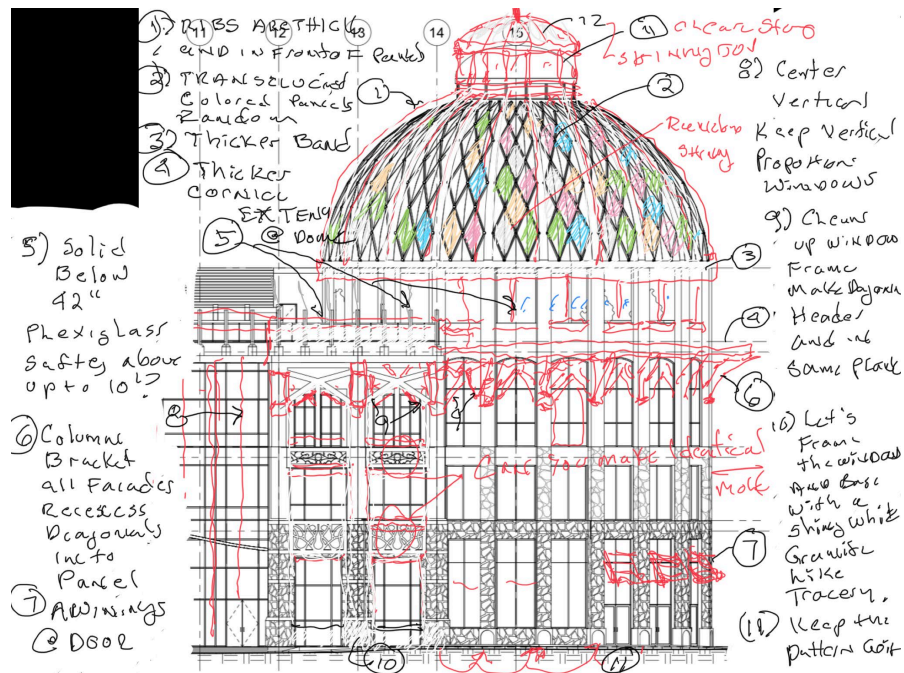 11
12
13
14
15
1) RIBS ARE THICK
AND IN FRONT OF Panel
2) TRANSLUCENT
Colored Panels
Random
3) Thicker Band
4 Thicker
CORNICE
EXTEND
@ Dome
5) Solid
Below
42"
Plexiglass
Saftey above
up to 10'?
6 Columns
Bracket
all Facades
Recesses
Diagonals
into
Panel
7 AWNINGS
@ DOOR
12
11 clear
1
2
3
4
5
6
7
8
9
10
11
Random
Strong
Cans you make Identical
Mold
8) Center
Vertical
Keep vertical
Proportion
Windows
9) Cleans
up window
Frame
Make Diagonal
Header
and in
Same place
10) Let's
Frame
the window
And Base
with a
Shiny white
Granite
Like
Tracery.
(11) Keep the
Pattern